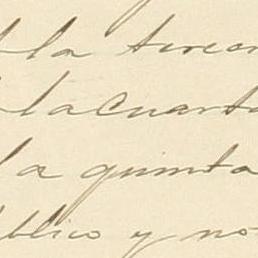 la tercer
la cuarta
la quinta
blico y no